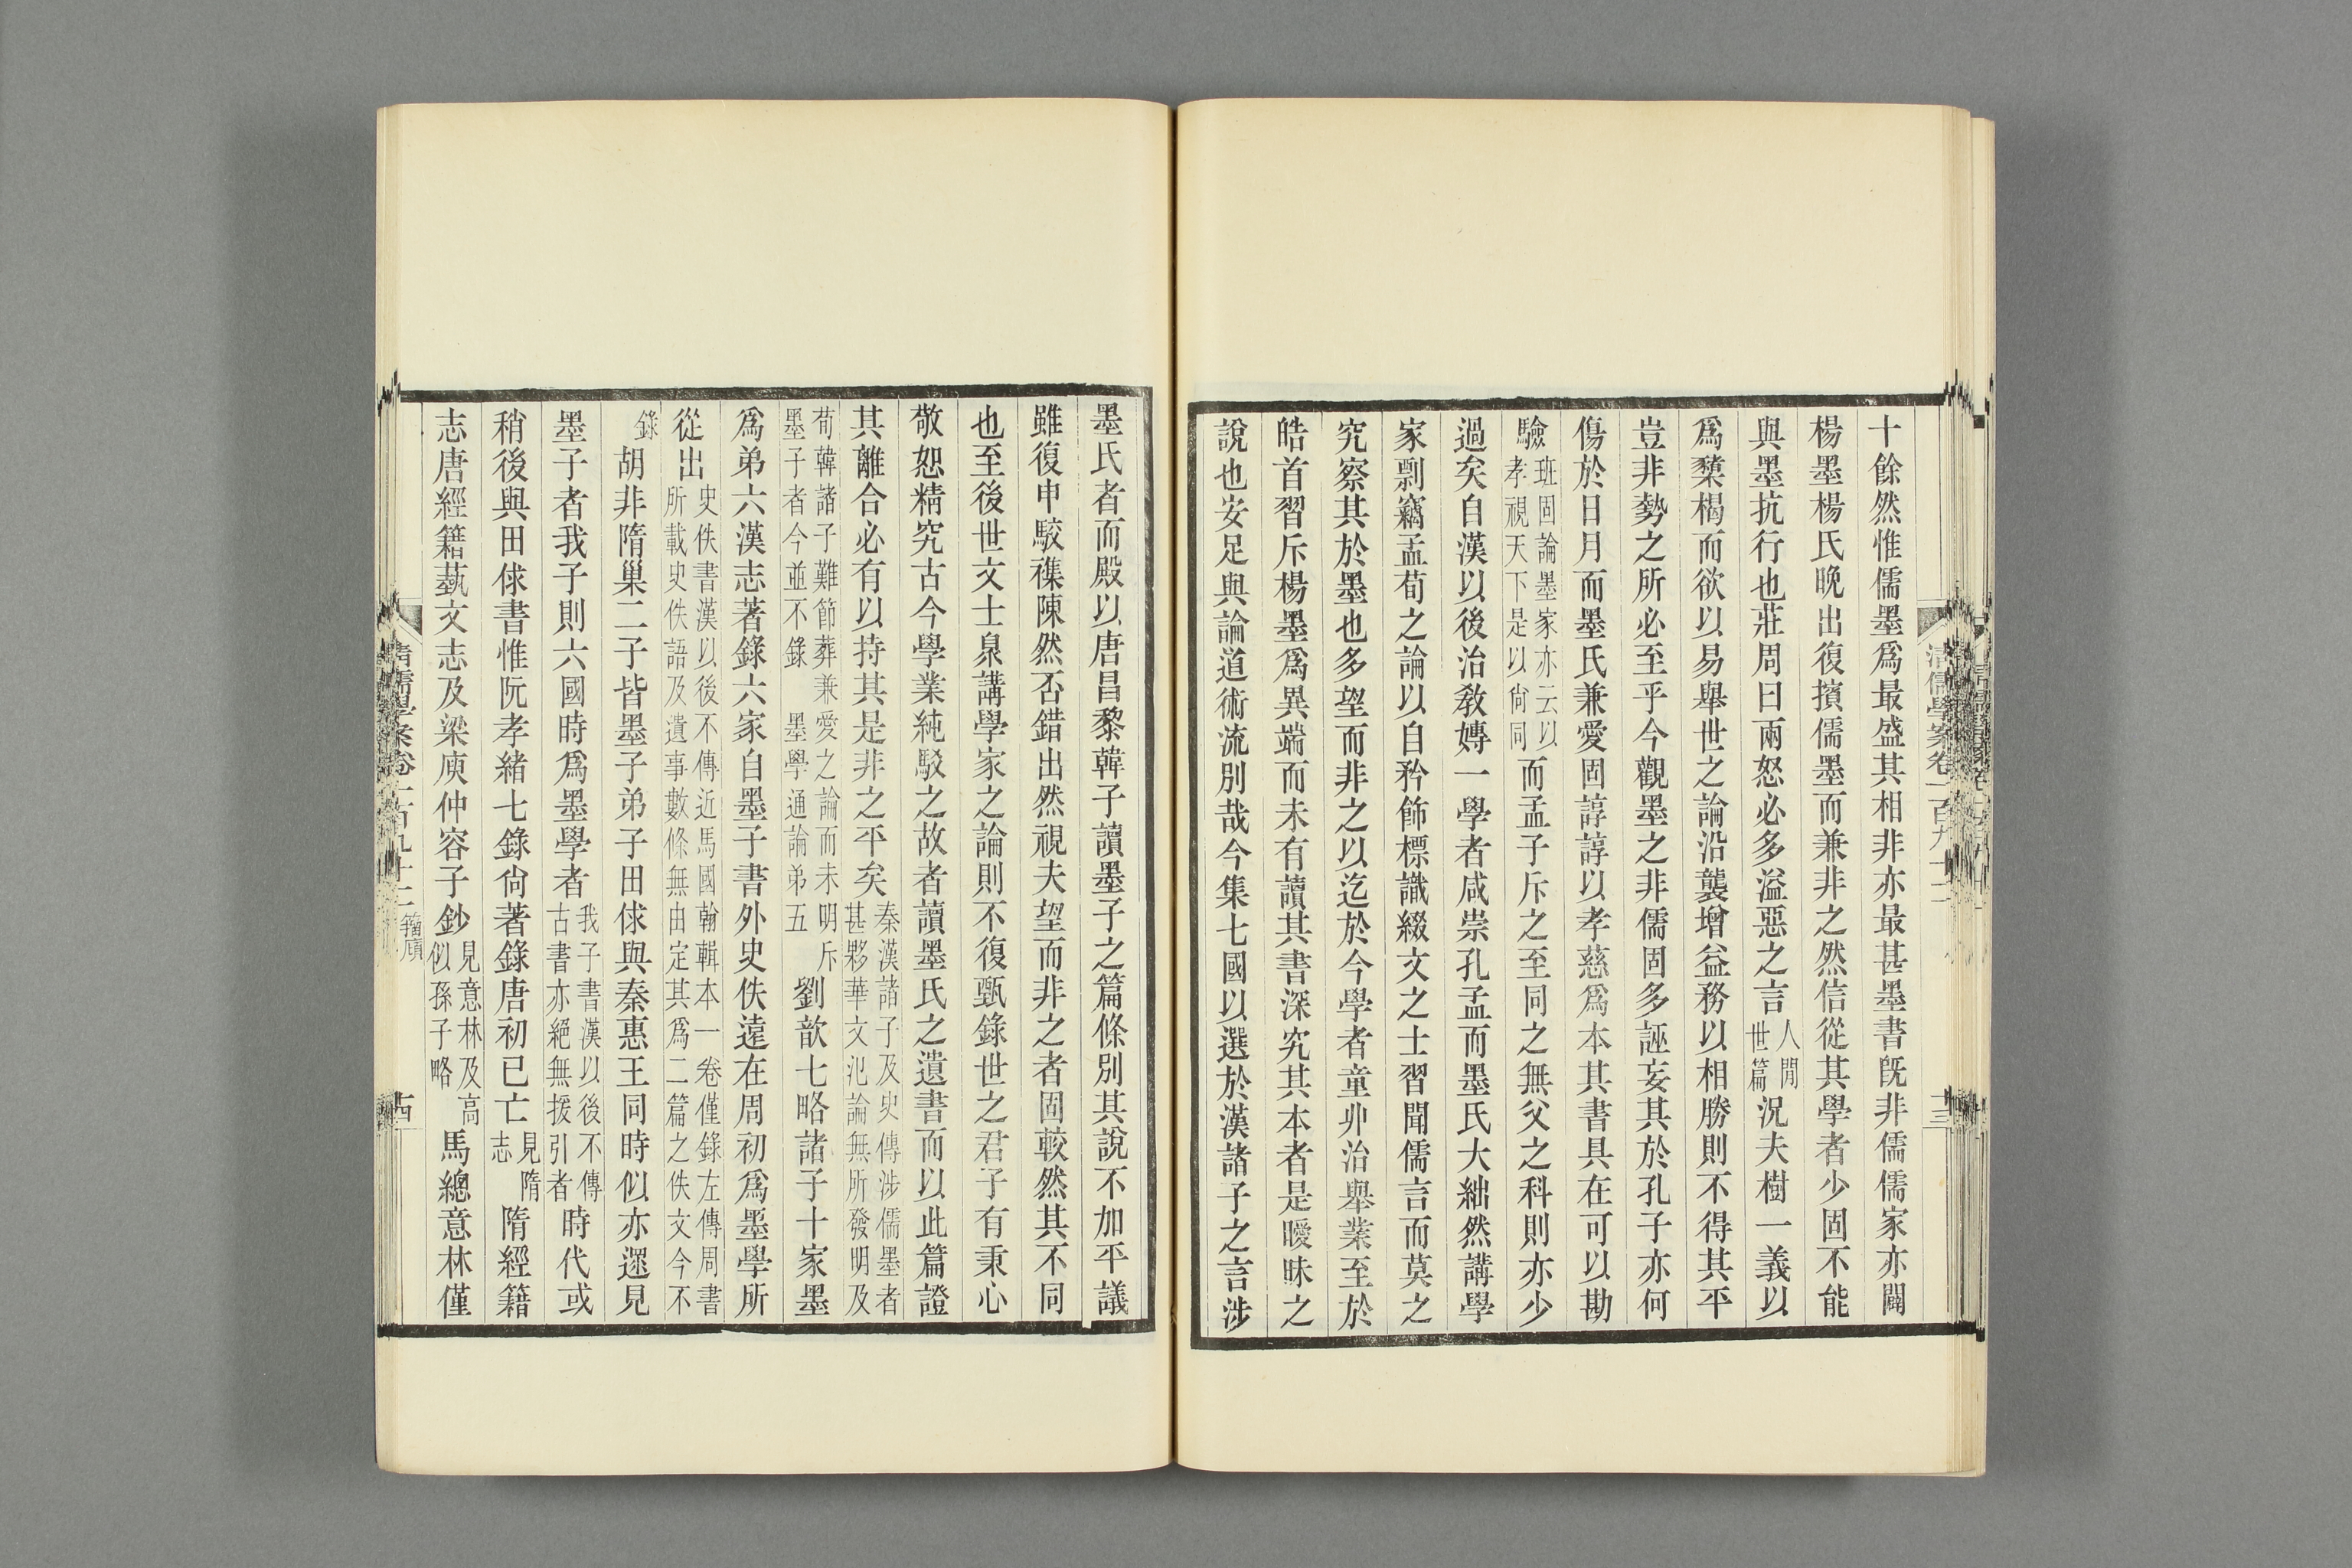 十餘然惟儒墨爲最盛其相非亦最甚墨書旣非儒儒家亦闢
楊墨楊氏晚出復擯儒墨而兼非之然信從其學者少固不能
與墨抗行也莊周曰兩怒必多溢惡之言人閒世篇況夫樹一義以
爲櫫楬而欲以易舉世之論沿襲增益務以相勝則不得其平
豈非勢之所必至乎今觀墨之非儒固多誣妄其於孔子亦何
傷於日月而墨氏兼愛固諄諄以孝慈爲本其書具在可以勘
驗班固論墨家亦云以孝視天下是以尙同而孟子斥之至同之無父之科則亦少
過矣自漢以後治敎嫥一學者咸崇孔孟而墨氏大絀然講學
家剽竊孟荀之論以自矜飾標識綴文之士習聞儒言而莫之
究察其於墨也多望而非之以迄於今學者童丱治舉業至於
皓首習斥楊墨爲異端而未有讀其書深究其本者是曖昧之
說也安足與論道術流別哉今集七國以選於漢諸子之言涉
清儒學案卷一百九十二
十三
墨氏者而殿以唐昌黎韓子讀墨子之篇條別其說不加平議
雖復申駮襍陳然否錯出然視夫望而非之者固較然其不同
也至後世文士臮講學家之論則不復甄錄世之君子有秉心
敬恕精究古今學業純駁之故者讀墨氏之遺書而以此篇證
其離合必有以持其是非之平矣秦漢諸子及史傳涉儒墨者甚夥華文氾論無所發明及
荀韓諸子難節葬兼愛之論而未明斥墨子者今並不錄 墨學通論弟五劉歆七略諸子十家墨
爲弟六漢志著錄六家自墨子書外史佚遠在周初爲墨學所
從出史佚書漢以後不傳近馬國翰輯本一卷僅錄左傳周書所載史佚語及遺事數條無由定其爲二篇之佚文今不
錄胡非隋巢二子皆墨子弟子田俅與秦惠王同時似亦逮見
墨子者我子則六國時爲墨學者我子書漢以後不傳古書亦絕無援引者時代或
稍後與田俅書惟阮孝緒七錄尙著錄唐初已亡見隋志隋經籍
志唐經籍藝文志及梁庾仲容子鈔見意林及高似孫子略馬總意林僅
清儒學案卷一百九十二 籀廎
十四